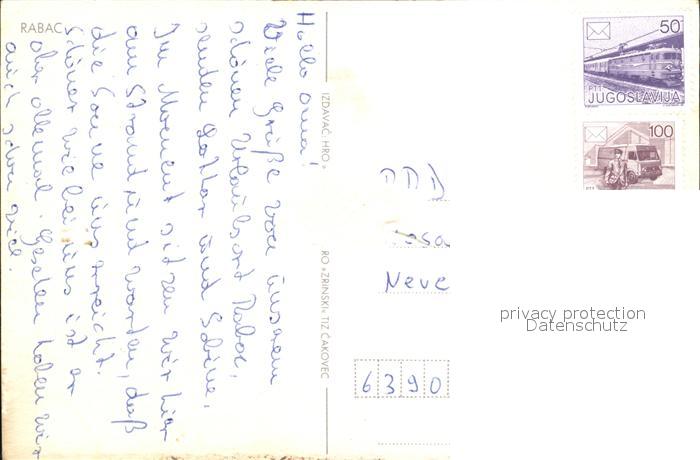 RABAC
Hallo Oma!
Viele Grüße von unserem
schönen Urlaubsort Rabac,
senden und Sabine.
Im Moment sitzen wir hier
am Strand und warten, daß
die Sonne uns
schöner wie bei uns ist er
aber allemal. Gestern haben wir
auch schon
IZDAVAČ: HRO »
RO »ZRINSKI« TIZ ČAKOVEC
50
PTT
JUGOSLAVIJA
100
PTT
osa
Neve
6390
privacy protection
Datenschutz